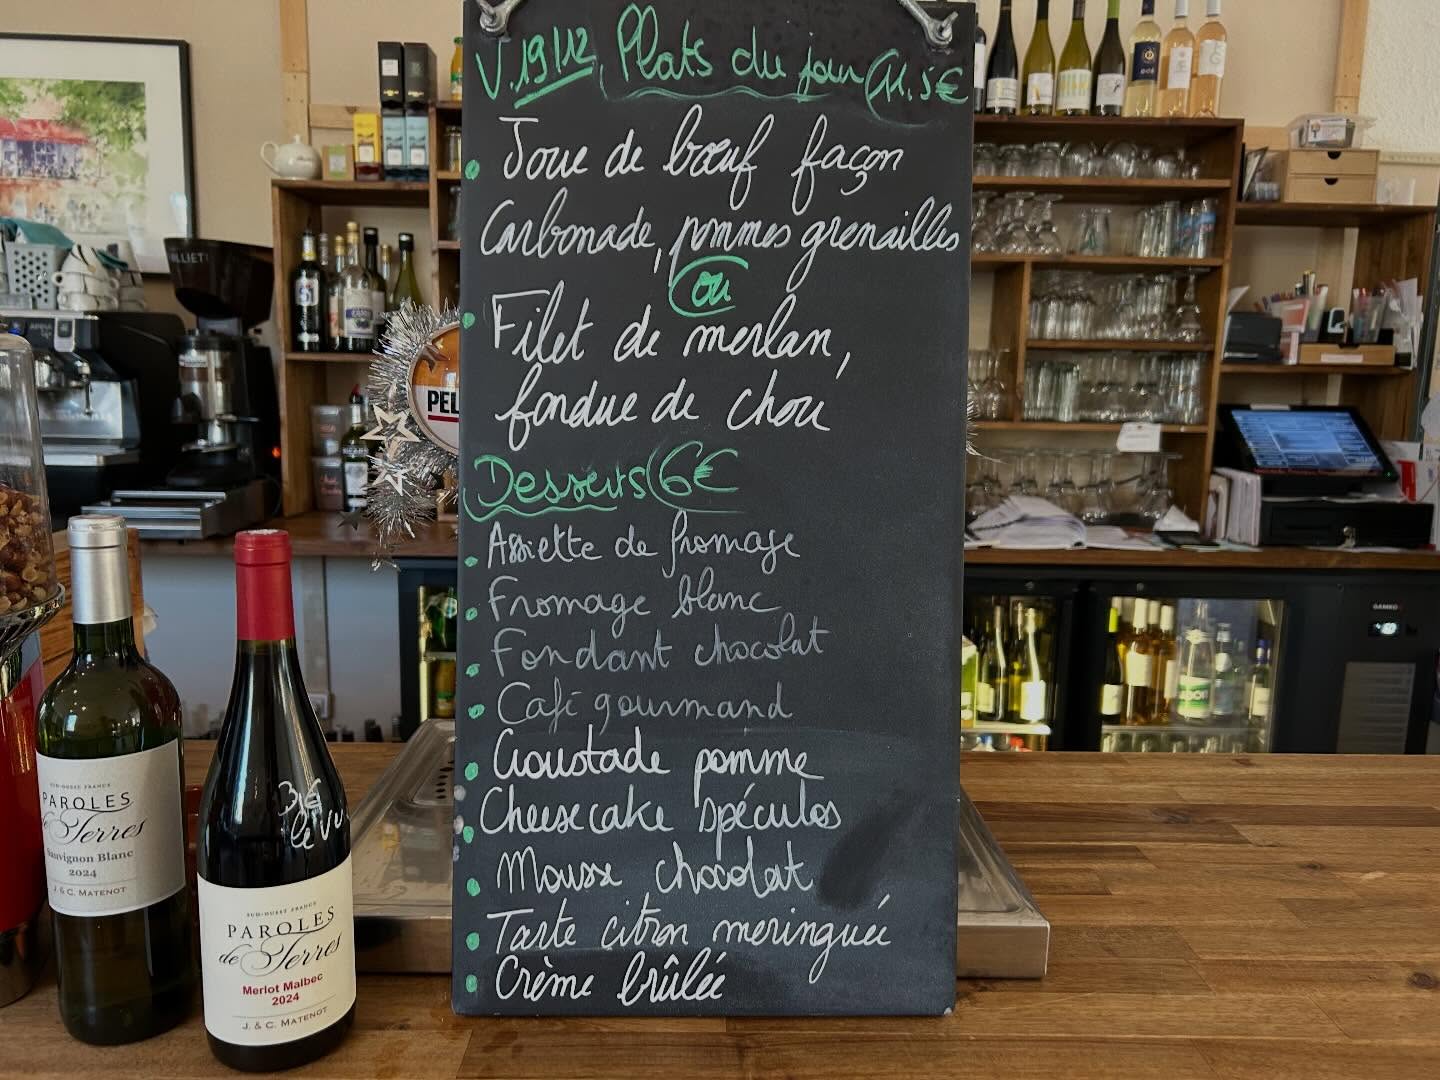 V.19/12, Plats du jour (11.5€
Joue de bœuf façon
Carbonade, pommes grenailles
ou
Filet de merlan,
fondue de chou
Desserts (6€
Assiette de fromage
Fromage blanc
Fondant chocolat
Café gourmand
Croustade pomme
Cheesecake spéculos
Mousse chocolat
Tarte citron meringuée
Crème brûlée
PEL
SUD-OUEST FRANCE
PAROLES
de Terres
Sauvignon Blanc
2024
J. & C. MATENOT
le
SUD-OUEST FRANCE
PAROLES
de Terres
Merlot Malbec
2024
J. & C. MATENOT